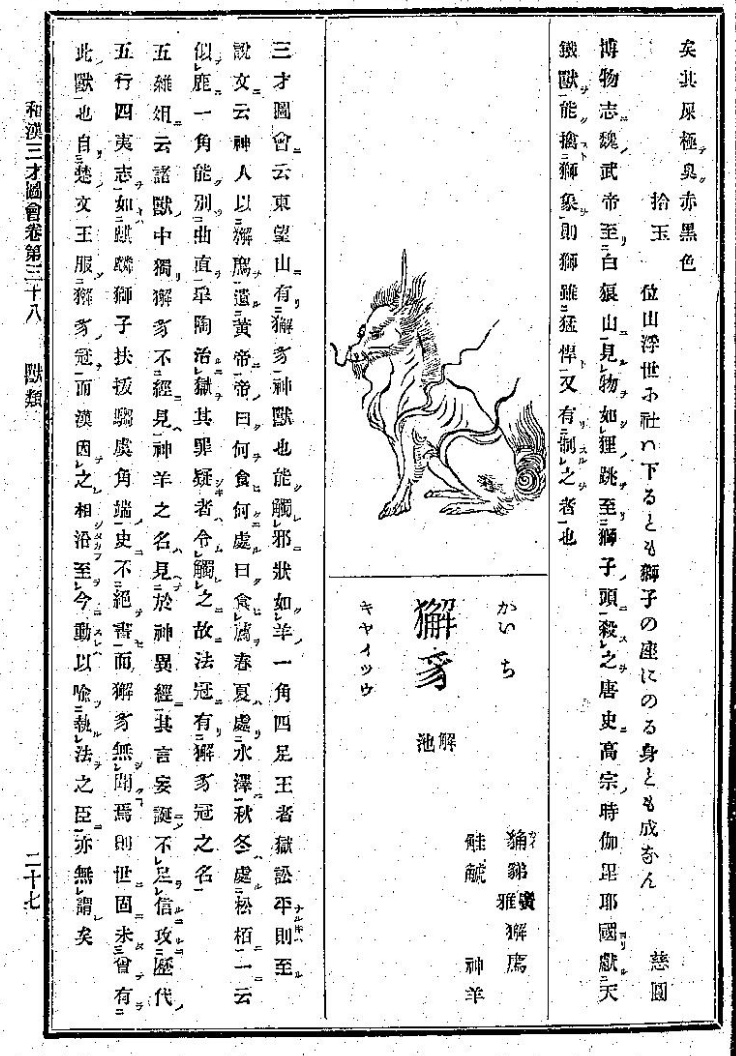 矣其尿極臭赤黒色
拾玉 位山浮世不社ハ下るとも獅子の座にのる身とも成なん 慈圓
博物志魏武帝至白狼山見物如狸跳至獅子頭殺之唐史高宗時伽毘耶國獻天
鐵獸能擒獅象則獅雖猛悍又有制之者也
かいち
獬豸 解池
キヤイツウ
獬廌
神羊
三才圖會云東望山有獬豸神獸也能觸邪狀如羊一角四足王者獄訟平則至
說文云神人以獬廌遺黃帝帝曰何食何處曰食薦春夏處水澤秋冬處松栢一云
似鹿一角能別曲直皐陶治獄其罪疑者令觸之故法冠有獬豸冠之名
五雜俎云諸獸中獨獬豸不經見神羊之名見於神異經其言妄誕不足信攻歷代
五行四夷志如麒麟獅子扶拔騶虞角端史不絕書而獬豸無聞焉則世固未曾有
此獸也自楚文王服獬豸冠而漢因之相沿至今動以喩執法之臣亦無謂矣
和漢三才圖會卷第三十八 獸類 二十七